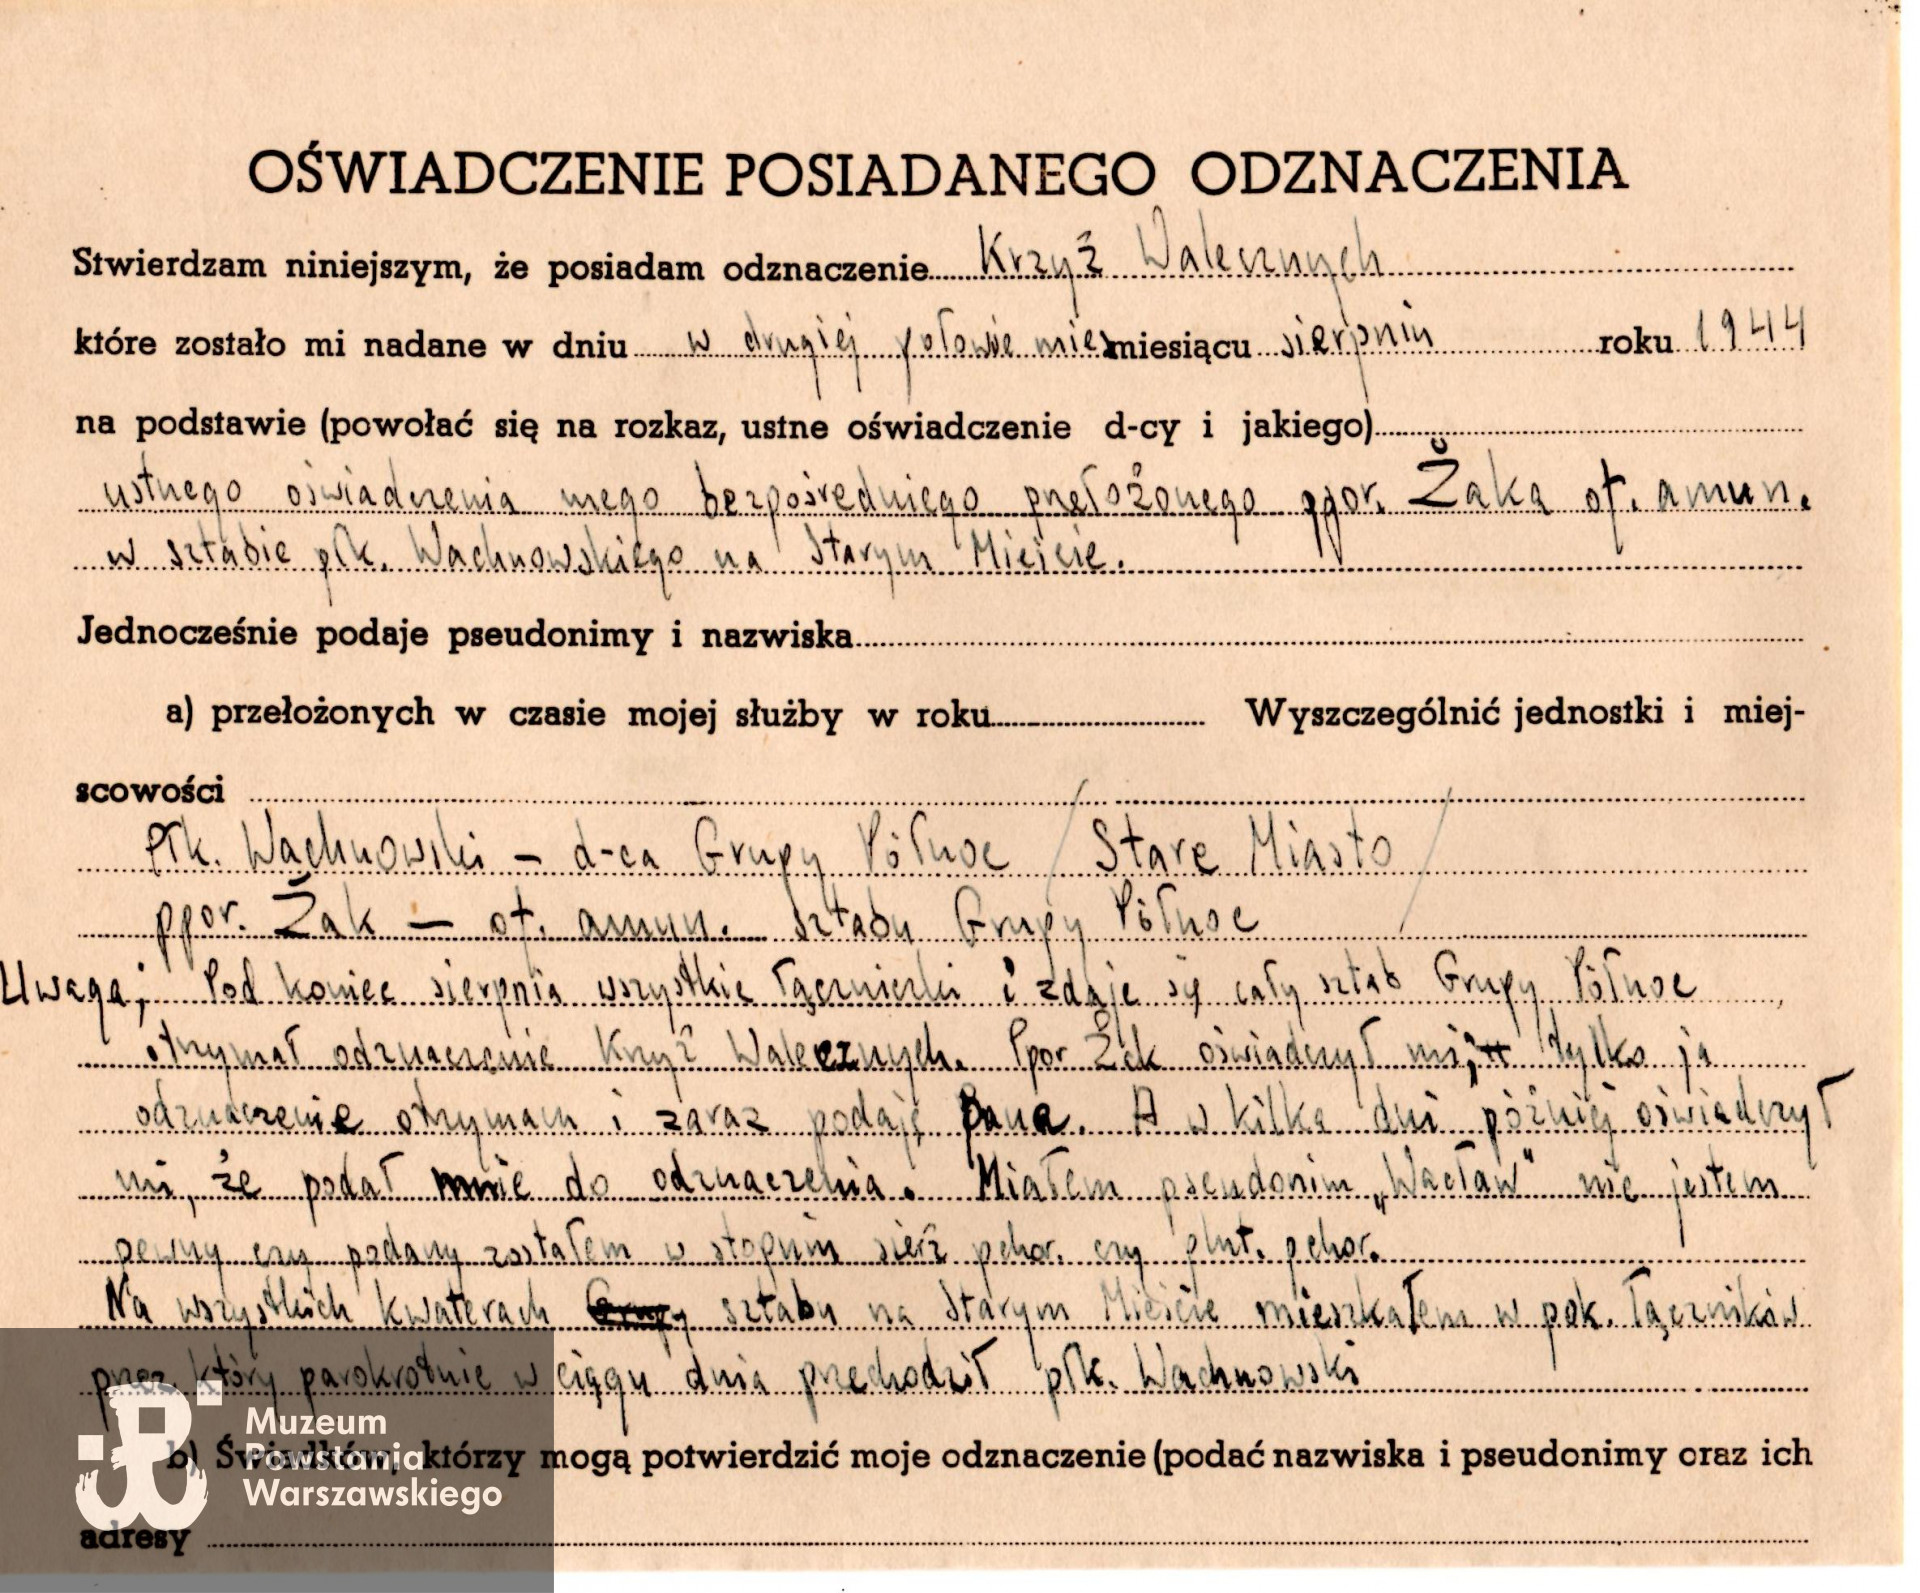 OŚWIADCZENIE POSIADANEGO ODZNACZENIA
Stwierdzam niniejszym, że posiadam odznaczenie Krzyż Walecznych
które zostało mi nadane w dniu w drugiej połowie mies miesiącu sierpniu roku 1944
na podstawie (powołać się na rozkaz, ustne oświadczenie d-cy i jakiego)
ustnego oświadczenia mego bezpośredniego przełożonego ppor. Żaka of. amun.
w sztabie płk. Wachnowskiego na Starym Mieście.
Jednocześnie podaje pseudonimy i nazwiska
a) przełożonych w czasie mojej służby w roku Wyszczególnić jednostki i miej-
scowości
płk. Wachnowski – d-ca Grupy Północ /Stare Miasto/
ppor. Żak – of. amun. sztabu Grupy Północ
Uwaga; Pod koniec sierpnia wszystkie łączniczki i zdaje się cały sztab Grupy Północ
otrzymał odznaczenie Krzyż Walecznych. Ppor Żak oświadczył mi; tylko ja
odznaczenie otrzymam i zaraz podaję Pana. A w kilka dni później oświadczył
mi, że podał mnie do odznaczenia. Miałem pseudonim „Wacław" nie jestem
pewny czy podany zostałem w stopniu sierż pchor. czy plut. pchor.
Na wszystkich kwaterach Grupy sztabu na Starym Mieście mieszkałem w pok. łączników
przez który parokrotnie w ciągu dnia przechodził płk. Wachnowski
b) Świadków, którzy mogą potwierdzić moje odznaczenie (podać nazwiska i pseudonimy oraz ich
adresy
Muzeum
Powstania
Warszawskiego